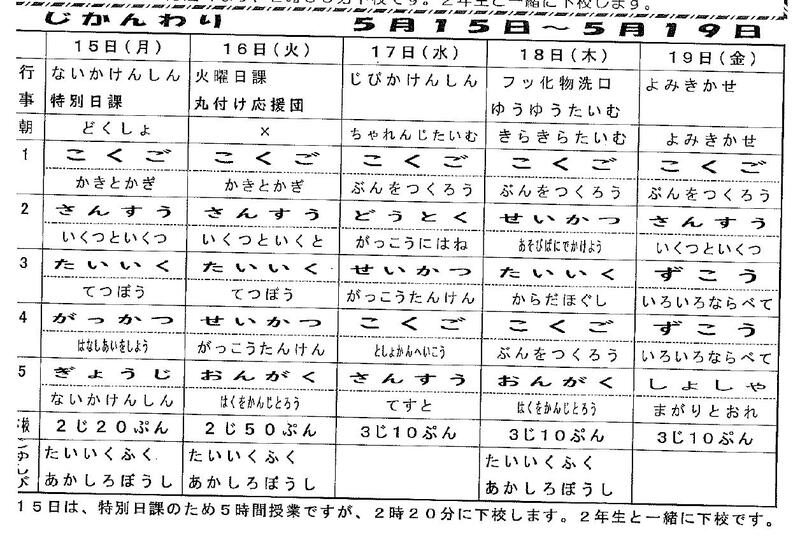 です。2年生と一緒に下校します。
じかんわり 5月15日～5月19日
15日(月) 16日(火) 17日(水) 18日(木) 19日(金)
行事 ないかけんしん 火曜日課 じびかけんしん フッ化物洗口 よみきかせ
特別日課 丸付け応援団 ゆうゆうたいむ
朝 どくしょ × ちゃれんじたいむ きらきらたいむ よみきかせ
1 こくご こくご こくご こくご こくご
かきとかぎ かきとかぎ ぶんをつくろう ぶんをつくろう ぶんをつくろう
2 さんすう さんすう どうとく せいかつ さんすう
いくつといくつ いくつといくと がっこうにはね あそびばにでかけよう いくつといくつ
3 たいいく たいいく せいかつ たいいく ずこう
てつぼう てつぼう がっこうたんけん からだほぐし いろいろならべて
4 がっかつ せいかつ こくご こくご ずこう
はなしあいをしよう がっこうたんけん としょかんへいこう ぶんをつくろう いろいろならべて
5 ぎょうじ おんがく さんすう おんがく しょしゃ
ないかけんしん はくをかんじとろう てすと はくをかんじとろう まがりとおれ
2じ20ぷん 2じ50ぷん 3じ10ぷん 3じ10ぷん 3じ10ぷん
たいいくふく たいいくふく たいいくふく
あかしろぼうし あかしろぼうし あかしろぼうし
15日は、特別日課のため5時間授業ですが、2時20分に下校します。2年生と一緒に下校です。